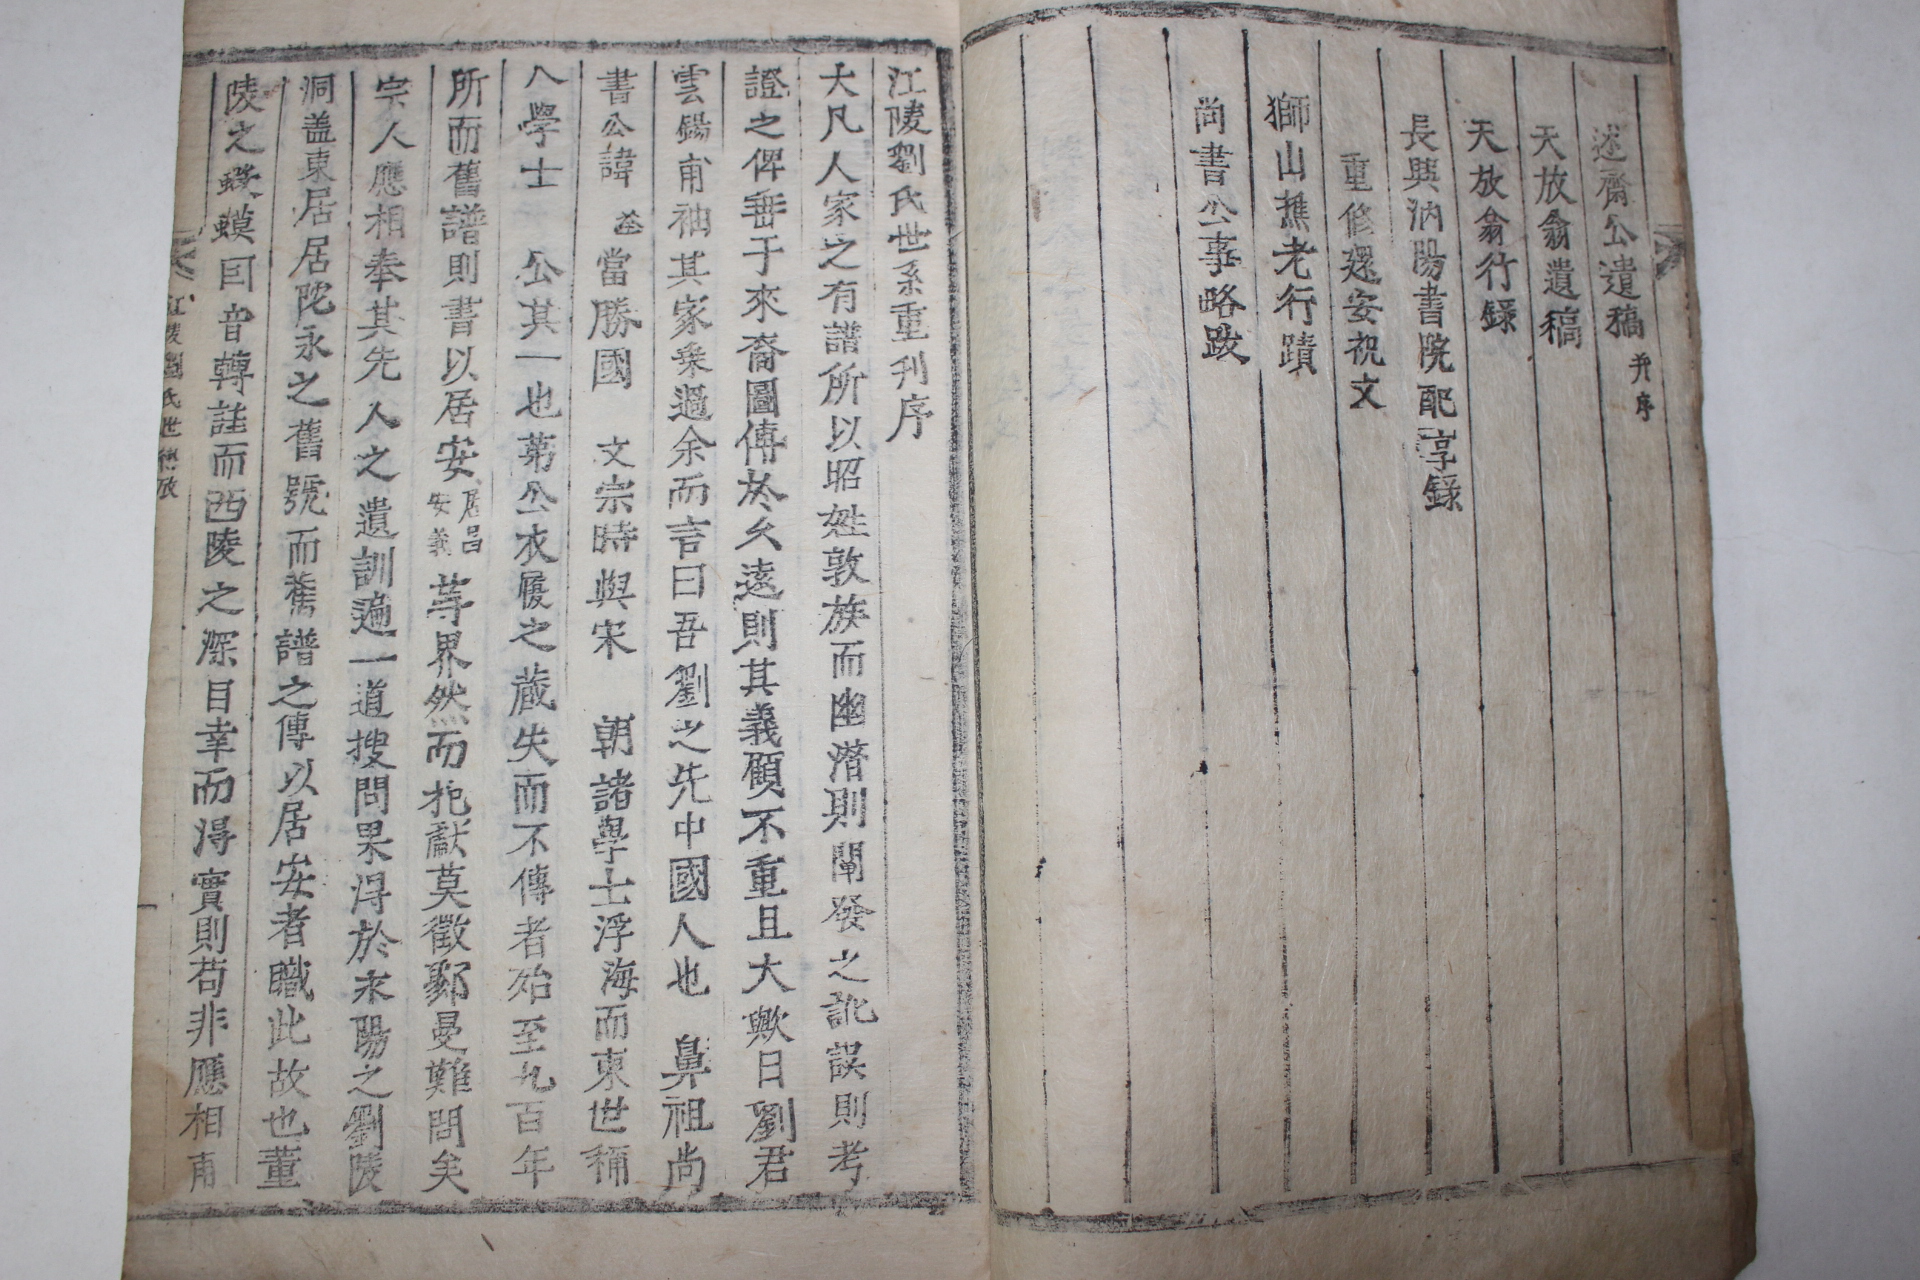 述齋公遺稿 并序
天放翁遺稿
天放翁行錄
長興汭陽書院配享錄
重修還安祝文
獅山樵老行蹟
尚書公事略跋
江陵劉氏世系重刊序
大凡人家之有譜所以昭姓敦族而幽潛則闡發之訛誤則考
證之俾垂于來裔圖傳於久遠則其義顧不重且大歟日劉君
雲錫甫袖其家乘過余而言曰吾劉之先中國人也 鼻祖尚
書公諱荃當勝國 文宗時與宋 朝諸學士浮海而東世稱
八學士 公其一也第公衣履之藏失而不傳者殆至九百年
所而舊譜則書以居安居昌安義等界然而杞獻莫徵鄹曼難問矣
宗人應相奉其先人之遺訓遍一道搜問果淂於永陽之劉陵
洞盖東居居陀永之舊號而舊譜之傳以居安者職此故也董
陵之蝦蟆曰音轉註而西陵之深目幸而淂實則苟非應相甫
江陵劉氏世德攷